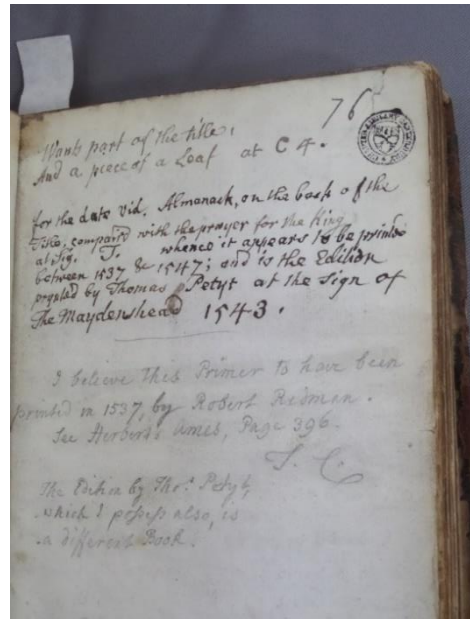 76
Wants part of the title;
And a piece of a Leaf at C 4.
for the date vid. Almanack, on the back of the
Title, compair'd with the prayer for the King
at Sig. T. whence it appears to be printed
between 1537 & 1547; and is the Edition
printed by Thomas Petyt at the Sign of
The Maydenshead 1543.
I believe this Primer to have been
printed in 1537, by Robert Redman.
See Herbert's Ames, Page 396.
The Edition by Tho.s Petyt,
which I possess also, is
a different Book.